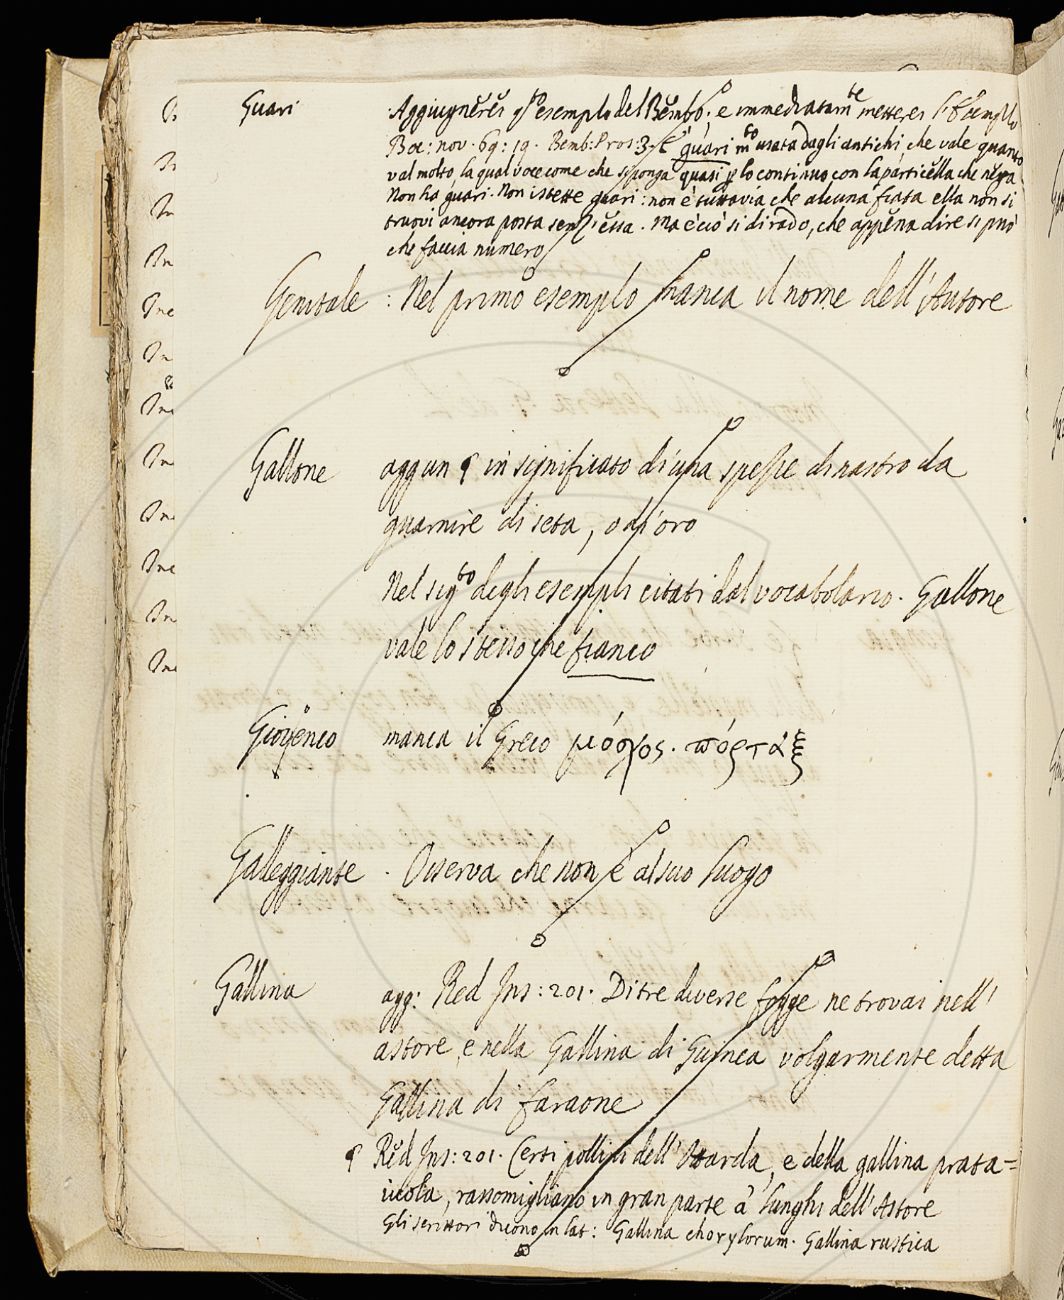 Guari
Aggiugneres q.to esempio del Bembo. e immediatam.te metterei l'Esempio
Boc: nov. 69: 19. Bemb: Pros: 3. È guari m.to usata dagli antichi, che vale quanto
val molto la qual voce come che si ponga quasi p lo continuo con la particella che niega
Non ha guari. Non istette guari: non è tuttavia che alcuna fiata ella non si
truovi ancora posta senz'essa. Ma è ciò sì di rado, che appena dire si può
che faccia numero
Genitale : Nel primo esempio manca il nome dell'Autore
Gallone aggiun ¶ in significato di una spezie di nastro da
guarnire di seta, o d'oro
Nel sig.to degli esempli citati dal vocabolario. Gallone
vale lo stesso che fianco
Giovenco manca il Greco μόσχος. πόρταξ
Galleggiante . Osserva che non è al suo luogo
Gallina agg: Red Ins: 201. Di tre diverse fogge ne trovai nell'
astore e nella Gallina di Guinea volgarmente detta
Gallina di faraone
¶ Red Ins: 201. Certi pollini dell'Ottarda, e della gallina prata=
iuola, rassomigliano in gran parte a' lunghi dell'Astore
Gli scrittori dicono in lat: Gallina chorylorum. Gallina rustica